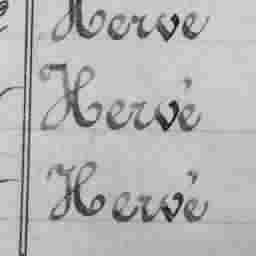 Herve
Hervé
Hervé